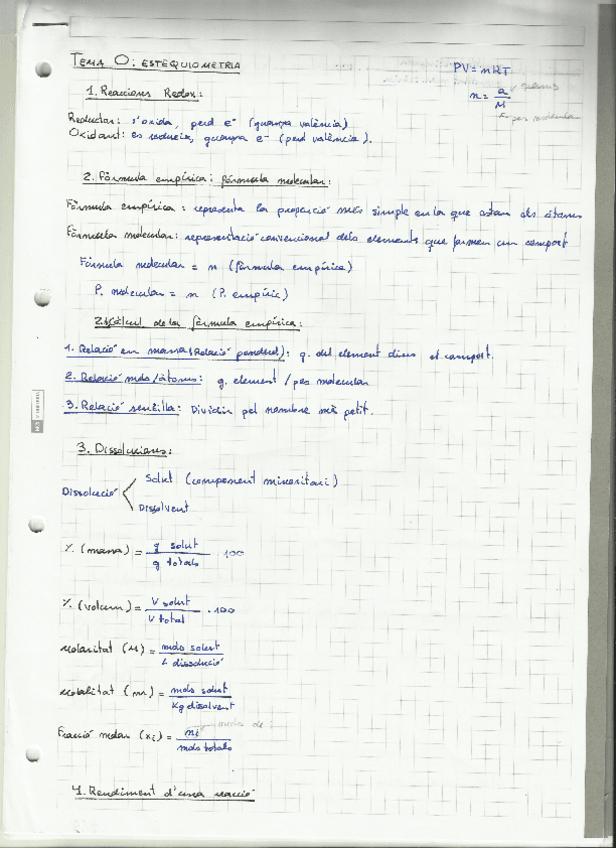 TEMA 0: ESTEQUIOMETRIA
PV = nRT
n = a/M
1. Reaccions Redox:
Reductor: s'oxida, perd e⁻ (guanya valència)
Oxidant: es redueix, guanya e⁻ (perd valència).
2. Fórmula empírica i fórmula molecular:
Fórmula empírica: representa la proporció més simple en la que estan els àtoms
Fórmula molecular: representació convencional dels elements que formen un compost
Fórmula molecular = n (fórmula empírica)
P. molecular = n (P. empíric)
Càlcul de la fórmula empírica:
1. Relació en massa (Relació ponderal): g. del element dins el compost.
2. Relació mols/àtoms: g. element / pes molecular
3. Relació senzilla: Dividir pel nombre més petit.
3. Dissolucions:
Dissolució
Solut (component minoritari)
Dissolvent
% (massa) = g solut / g totals · 100
% (volum) = V solut / V total · 100
Molaritat (M) = mols solut / L dissolució
Molalitat (m) = mols solut / Kg dissolvent
Fracció molar (xi) = ni / mols totals
4. Rendiment d'una reacció